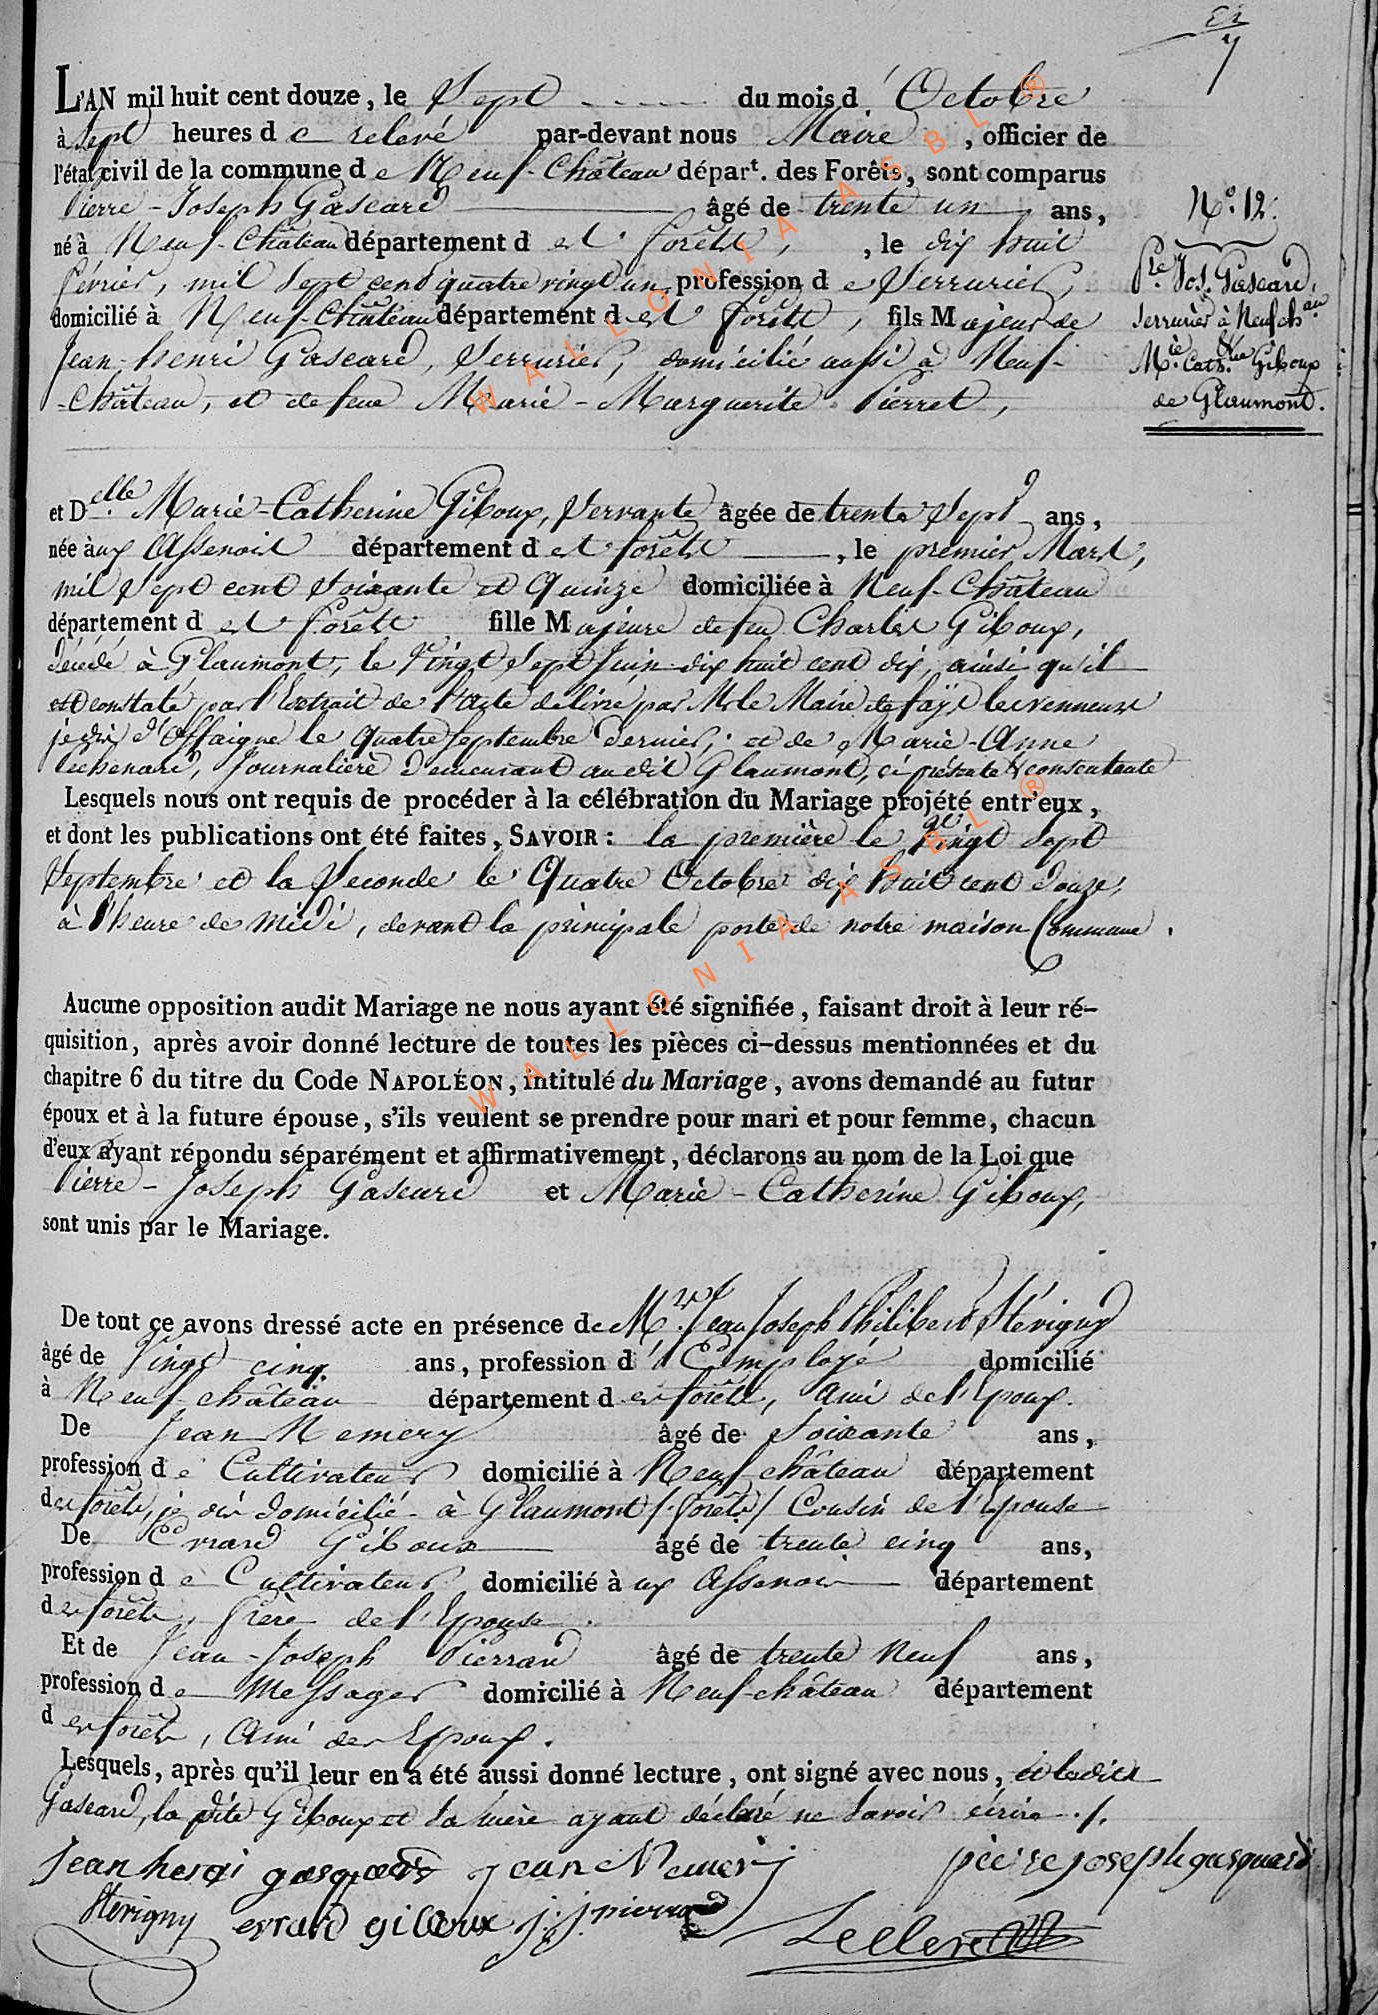 L'AN mil huit cent douze, le Sept du mois d'Octobre
à sept heures de relevé par-devant nous Maire, officier de
l'état civil de la commune de Neuf-Château départ. des Forêts, sont comparus
Pierre-Joseph Gascard âgé de trente un ans,
né à Neuf-Château département des forêts, , le dix huit
février, mil sept cent quatre vingt un profession de Serrurier,
domicilié à Neuf-Château département des forêts, fils Majeur de
Jean-henri Gascard, Serrurier, domicilié aussi à Neuf-
-Château, et de feue Marie-Marguerite Pierret,
N.° 12.
P.re Jos. Gascard,
Serrurier à Neufch.au
&
M.ie Cath.ine Giboux
de Glaumont.
et Delle Marie-Catherine Giboux, Servante âgée de trente Sept ans,
née aux Assenois département des forêts, le premier Mars,
mil Sept cent Soixante et Quinze domiciliée à Neuf-Château
département des forêts fille Majeure de feu Charles Giboux,
décédé à Glaumont, le Vingt Sept Juin dix huit cent dix, ainsi qu'il
est constaté par l'Extrait de l'acte délivré par Mr le Maire de fays les venneurs
je dis d'Offaigne le quatre Septembre dernier; et de Marie-Anne
Journalière demeurant audit Glaumont, ci présente & consentante
Lesquels nous ont requis de procéder à la célébration du Mariage projété entr'eux,
et dont les publications ont été faites, SAVOIR : la première le Vingt Sept
Septembre et la Seconde le Quatre Octobre dix huit cent douze,
à l'heure de midi, devant la principale porte de notre maison Commune.
Aucune opposition audit Mariage ne nous ayant été signifiée, faisant droit à leur ré-
quisition, après avoir donné lecture de toutes les pièces ci-dessus mentionnées et du
chapitre 6 du titre du Code NAPOLÉON, intitulé du Mariage, avons demandé au futur
époux et à la future épouse, s'ils veulent se prendre pour mari et pour femme, chacun
d'eux ayant répondu séparément et affirmativement, déclarons au nom de la Loi que
Pierre-Joseph Gascard et Marie-Catherine Giboux,
sont unis par le Mariage.
De tout ce avons dressé acte en présence de Mr. Jean Joseph Philibert Stévigny
âgé de Vingt cinq ans, profession d'Employé domicilié
à Neuf château département des forêts, Ami de l'Epoux.
De Jean Nemery âgé de Soixante ans,
profession de Cultivateur domicilié à Neuf château département
des forêts, je dis domicilié à Glaumont /forêts/ Cousin de l'Epouse
De Evrard Giboux âgé de trente cinq ans,
profession de Cultivateur domicilié à ux Assenois département
des forêts, frère de l'Epouse.
Et de Jean-Joseph Pierrard âgé de trente Neuf ans,
profession de Messager domicilié à Neuf-château département
des forêts, Ami des Epoux.
Lesquels, après qu'il leur en a été aussi donné lecture, ont signé avec nous, et lesdits
Gascard, la dite Giboux et Sa mère ayant déclaré ne Savoir écrire ./.
Jean henri gasquard jean Nemery pierre joseph gasquard
Stévigny evrard giboux j. j. pierrard Leclere
WALLONIA ASBL ®
WALLONIA ASBL ®